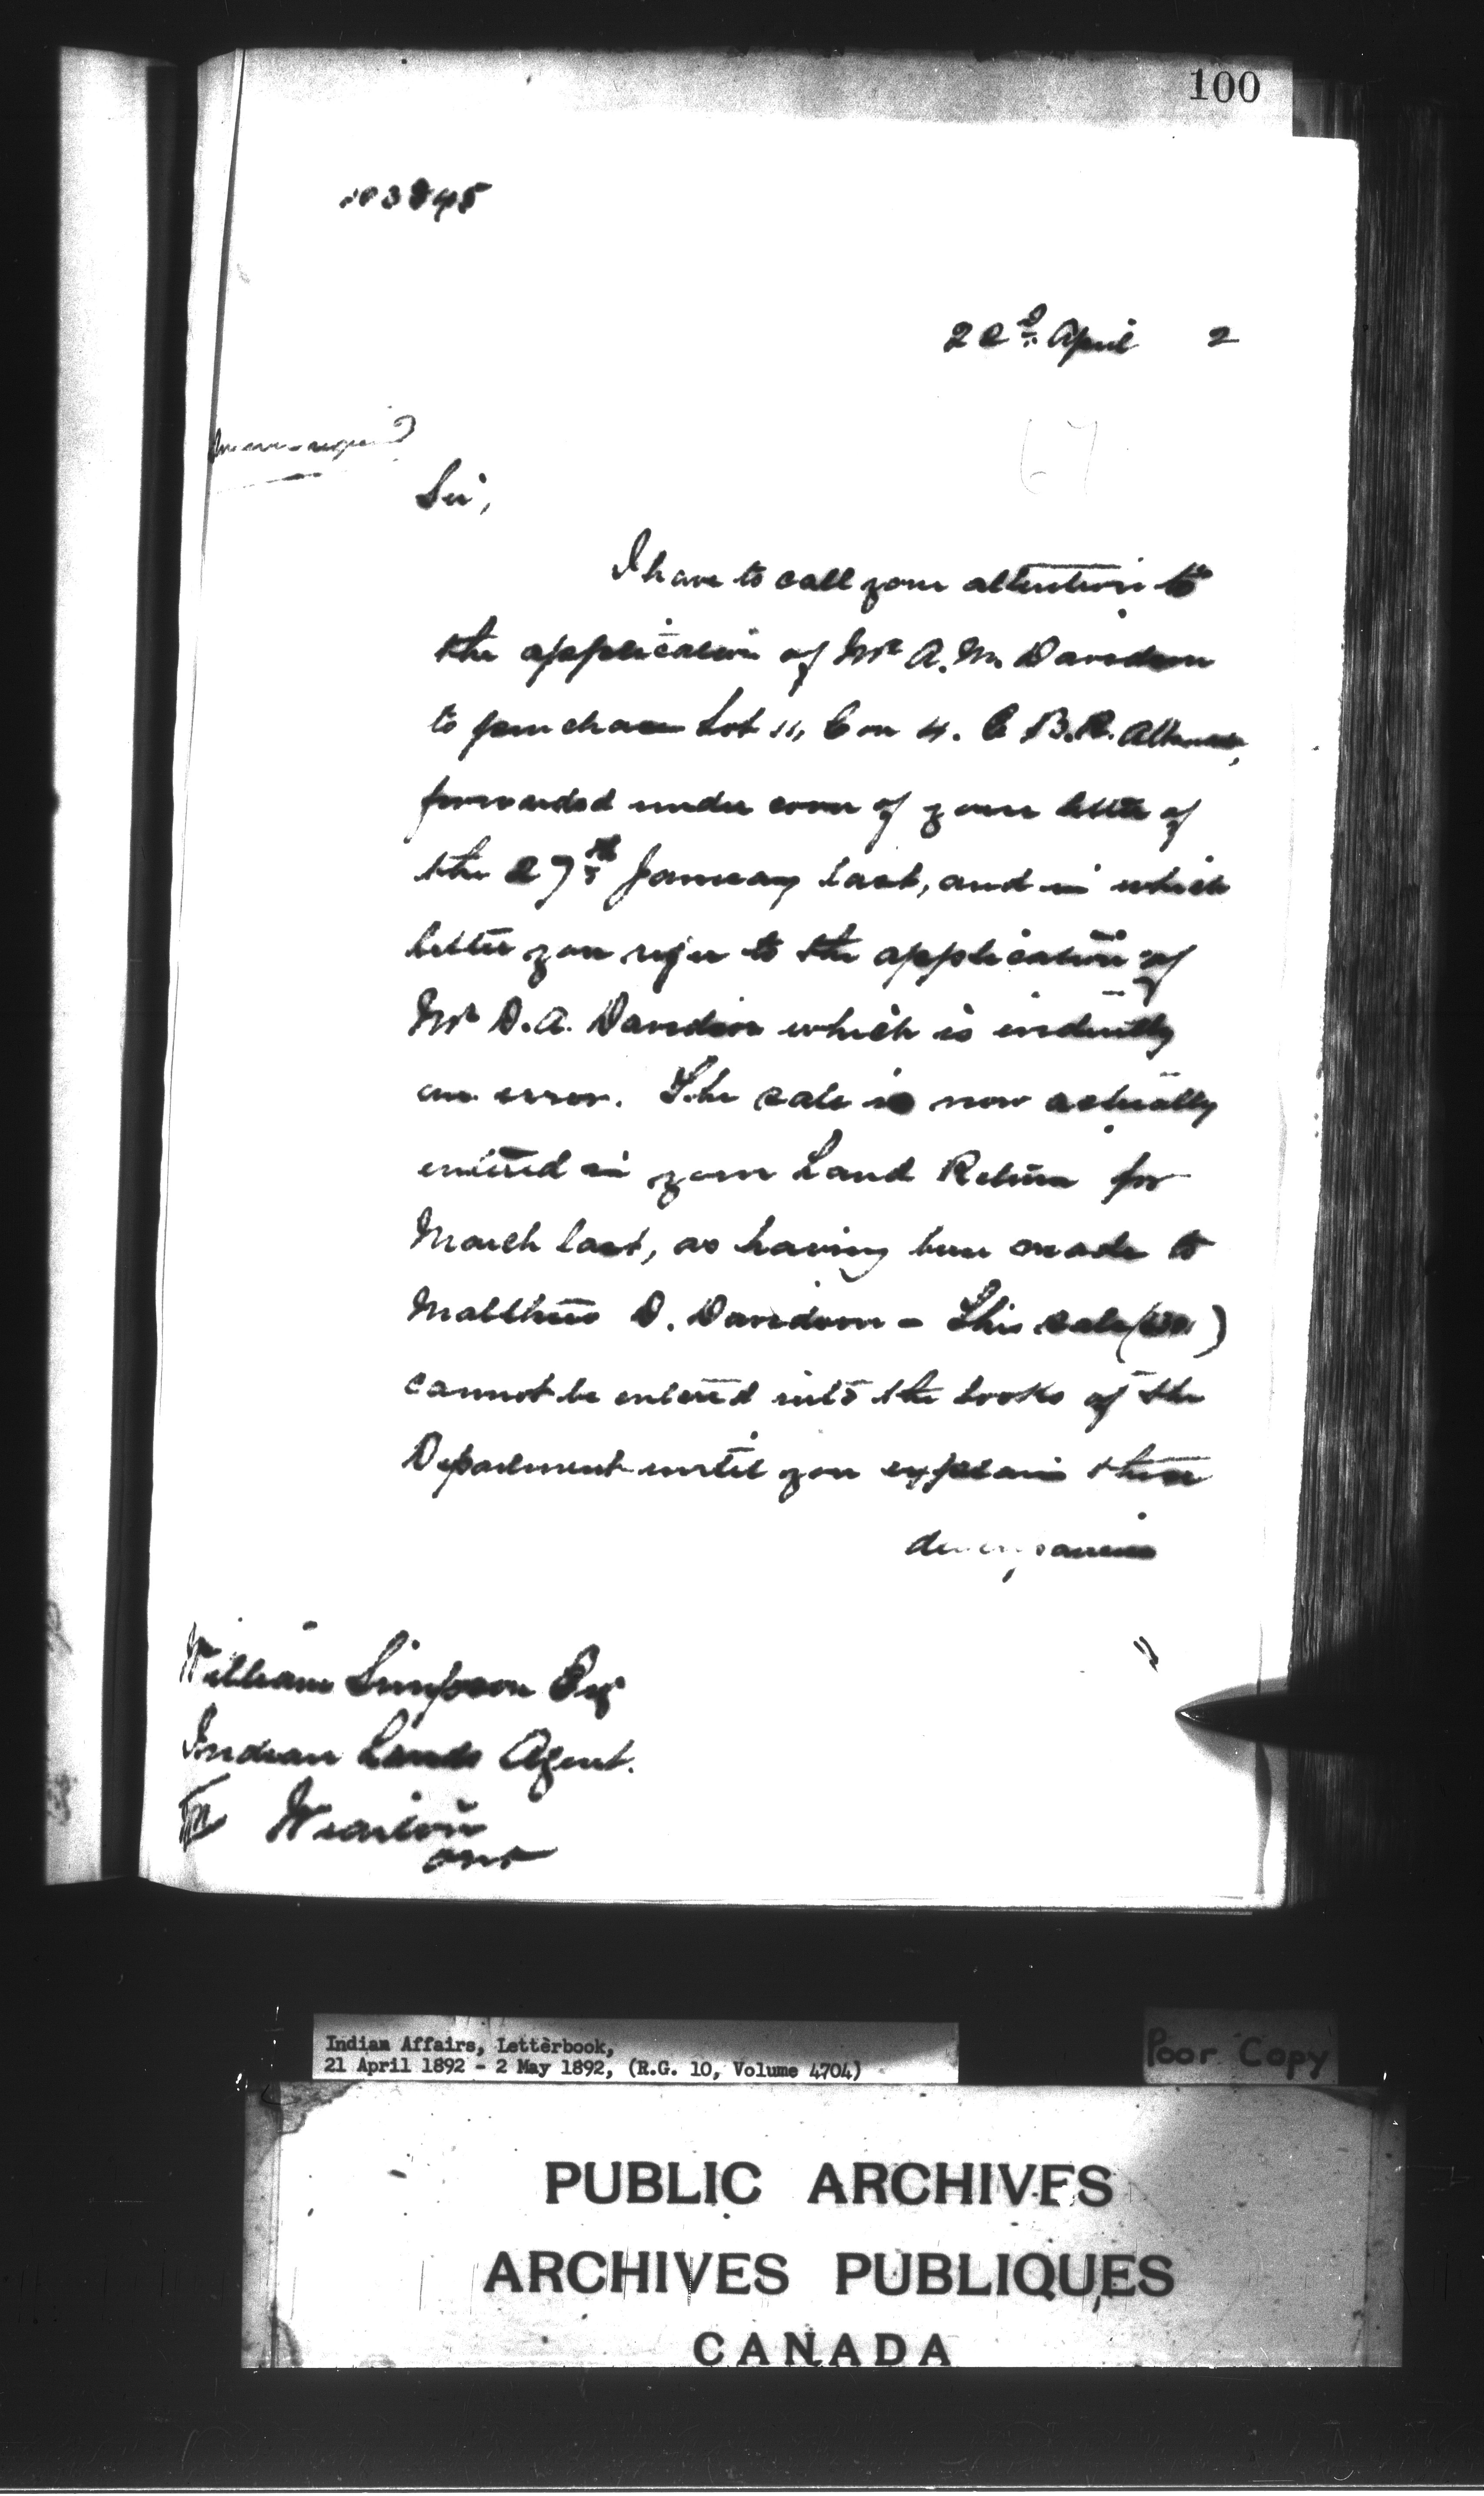 100
103845
22d April 2
Sir,
I have to call your attention to
the application of Mr A. M. Davidson
to purchase Lot 11, Con 4. E B.R.
forwarded under cover of your letter of
the 27th January last, and in which
letter you refer to the application of
Mr D. A. Davidson which is evidently
an error. The sale is now actually
entered in your Land Return for
March last, as having been made to
Matthew D. Davidson - This sale
cannot be entered into the books of the
Department until you explain these
William Simpson Esq
Indian Lands Agent.
Wiarton
Ont
Indian Affairs, Letterbook,
21 April 1892 - 2 May 1892, (R.G. 10, Volume 4704)
Poor Copy
PUBLIC ARCHIVES
ARCHIVES PUBLIQUES
CANADA